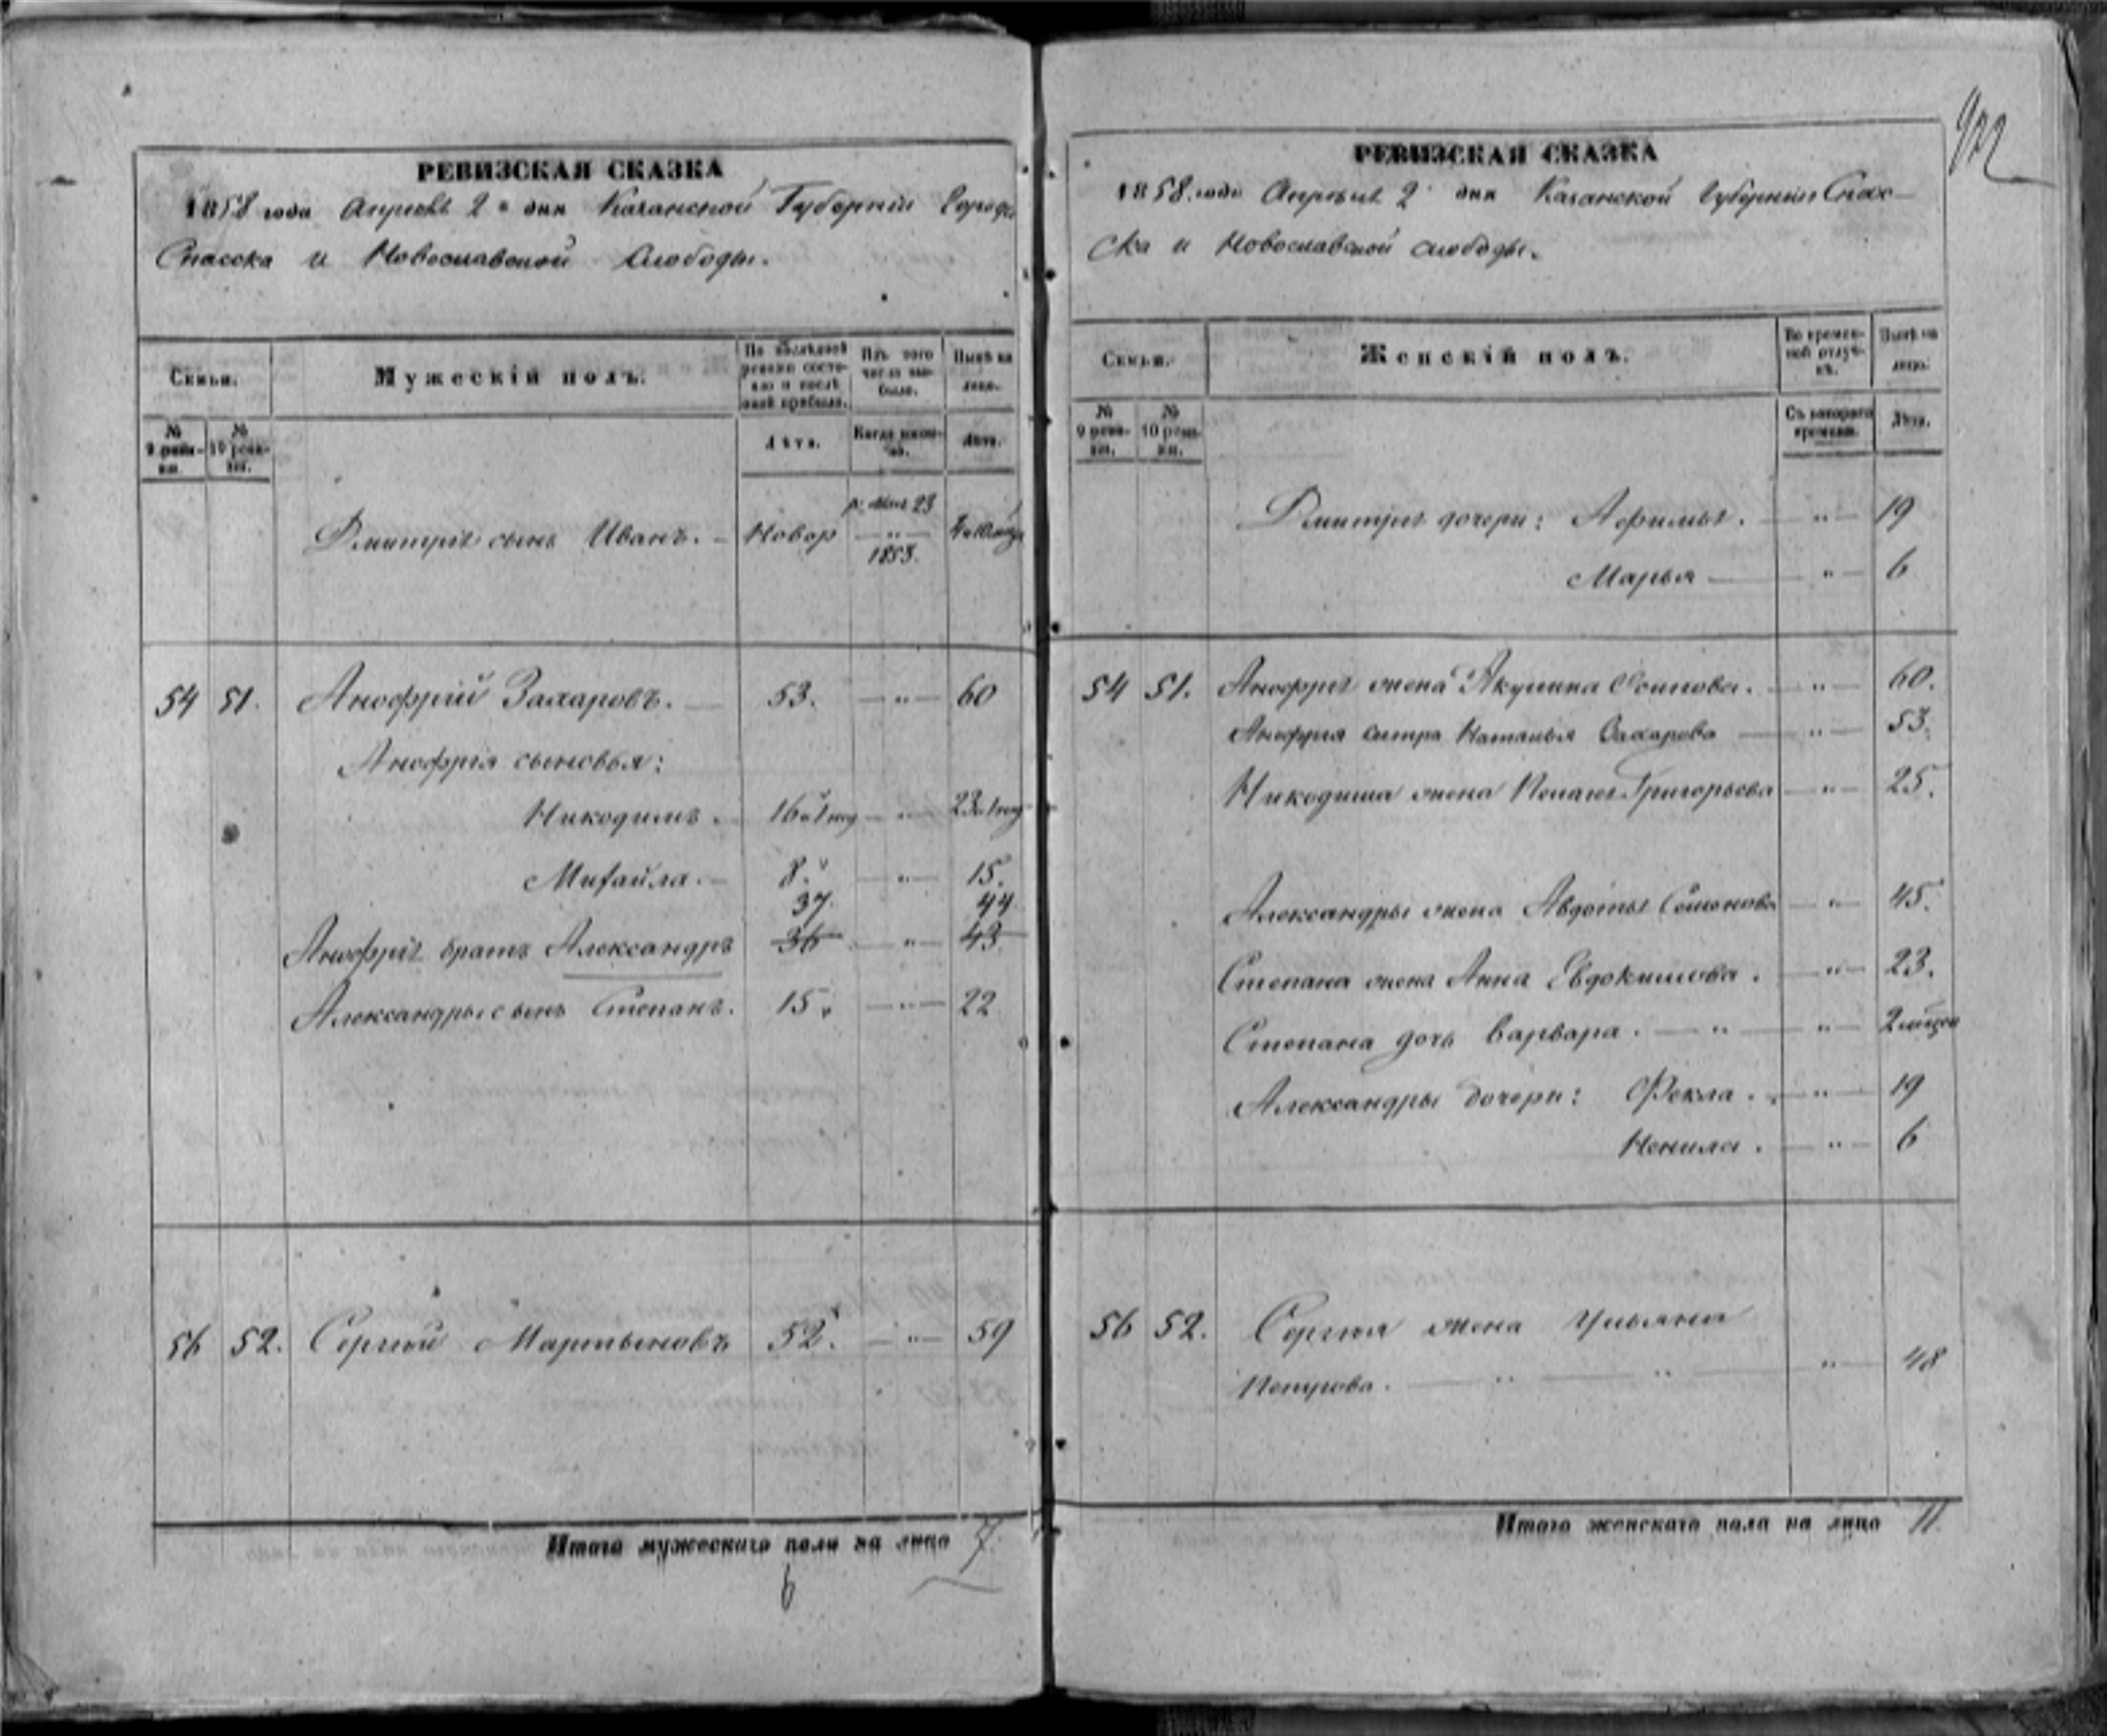 РЕВИЗСКАЯ СКАЗКА
1858 года Апреля 2 дня Казанской Губернии Города
Спасска и Новоспавской Слободы.
Семьи.
Мужескій полъ.
По послѣдней ревизіи состояло и послѣ оной прибыло.
Изъ того числа выбыло.
Нынѣ на лицо.
№ 9 ревизіи.
№ 10 ревизіи.
Лѣта.
Когда именно.
Лѣта.
Дмитрія сынъ Иванъ. Новор 23 1853.
54 51. Анофрій Захаровъ. 53. " 60
Анофрія сыновья:
Никодимъ. 16 1 " 23 1
Михайла. 8. " 15.
37. 44
Анофрія братъ Александръ 36 " 43
Александры сынъ Степанъ. 15 " 22
56 52. Сергѣй Мартыновъ 52. " 59
Итого мужескаго пола на лицо 7.
6
РЕВИЗСКАЯ СКАЗКА
1858 года Апреля 2 дня Казанской Губерніи Спас-
ска и Новоспавской слободы.
Семьи.
Женскій полъ.
Во временной отлучкѣ.
Нынѣ на лицо.
№ 9 ревизіи.
№ 10 ревизіи.
Съ котораго времени.
Лѣта.
Дмитрія дочери: Афимья. " 19
Марья " 6
54 51. Анофрія жена Акулина Осипова. " 60.
Анофрія систра Наталья Захарова " 53.
Никодима жена Пелагея Григорьева " 25.
Александры жена Авдотья Семенова " 45.
Степана жена Анна Евдокимова. " 23.
Степана дочь Варвара. " " 2
Александры дочери: Фекла. " 19
Ненила. " 6
56 52. Сергѣя жена Ульяна
Петрова. " " " 48
Итого женскаго пола на лицо 11.